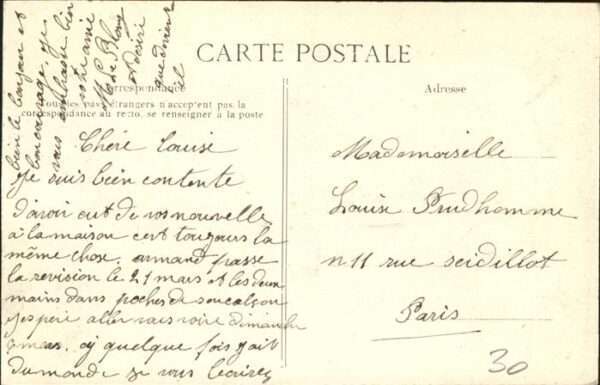 CARTE POSTALE
Correspondance
Tous les pays étrangers n'acceptent pas la
correspondance au recto, se renseigner à la poste
Adresse
Chère Louise
Je suis bien contente
d'avoir eut de vos nouvelle
à la maison cest toujours la
même chose. armand passe
la revision le 21 mars et les deux
mains dans poches de son calçon
j'espère aller vous voire dimanche
mars. quelque fois yait
du monde je vous
bien le bonjour et
bon courage. je
vous embrasse bien
votre amie
M Le Blong
Mademoiselle
Louise Prudhomme
n 11 rue seidillot
Paris
30